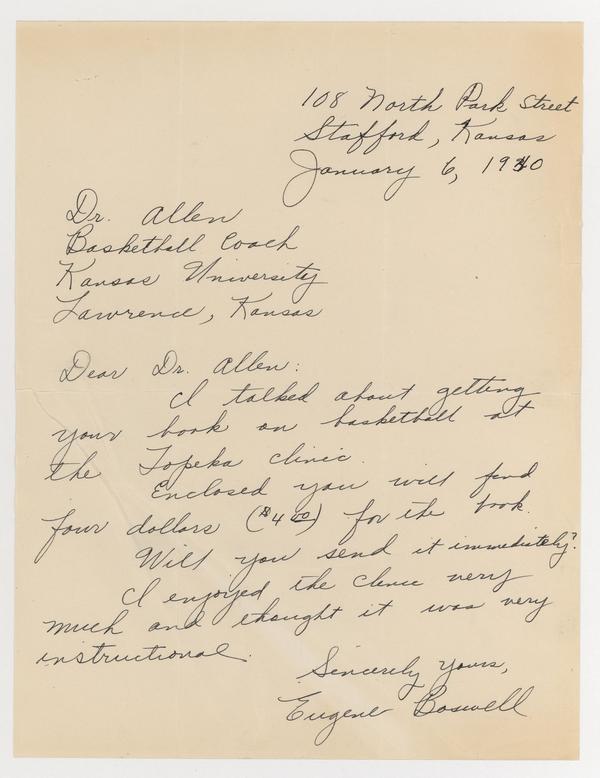 108 North Park Street
Stafford, Kansas
January 6, 1940
Dr. Allen
Basketball Coach
Kansas University
Lawrence, Kansas
Dear Dr. Allen:
I talked about getting
your book on basketball at
the Topeka clinic.
Enclosed you will find
four dollars ($4 00) for the book.
Will you send it immediately?
I enjoyed the clinic very
much and thought it was very
instructional.
Sincerely yours,
Eugene Boswell